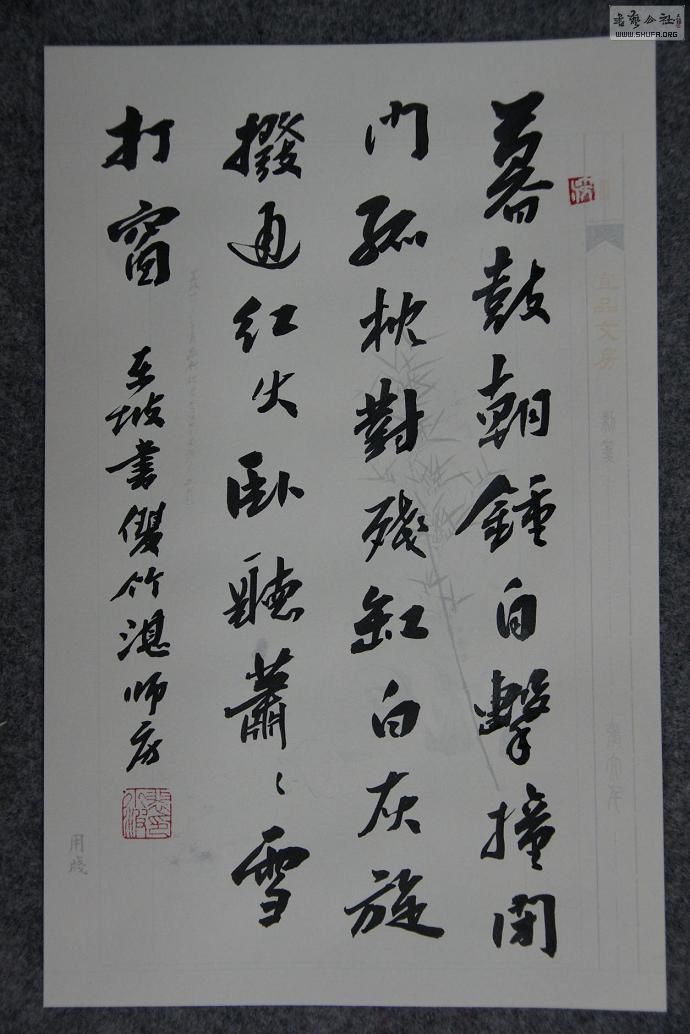 暮鼓朝鍾自擊撞閉
門孤枕對殘缸白灰旋
撥通红火卧聽蕭〻雪
打窗 东坡書雙竹湛师房
宜品文房
用箋
書藝公社
WWW.SHUFA.ORG